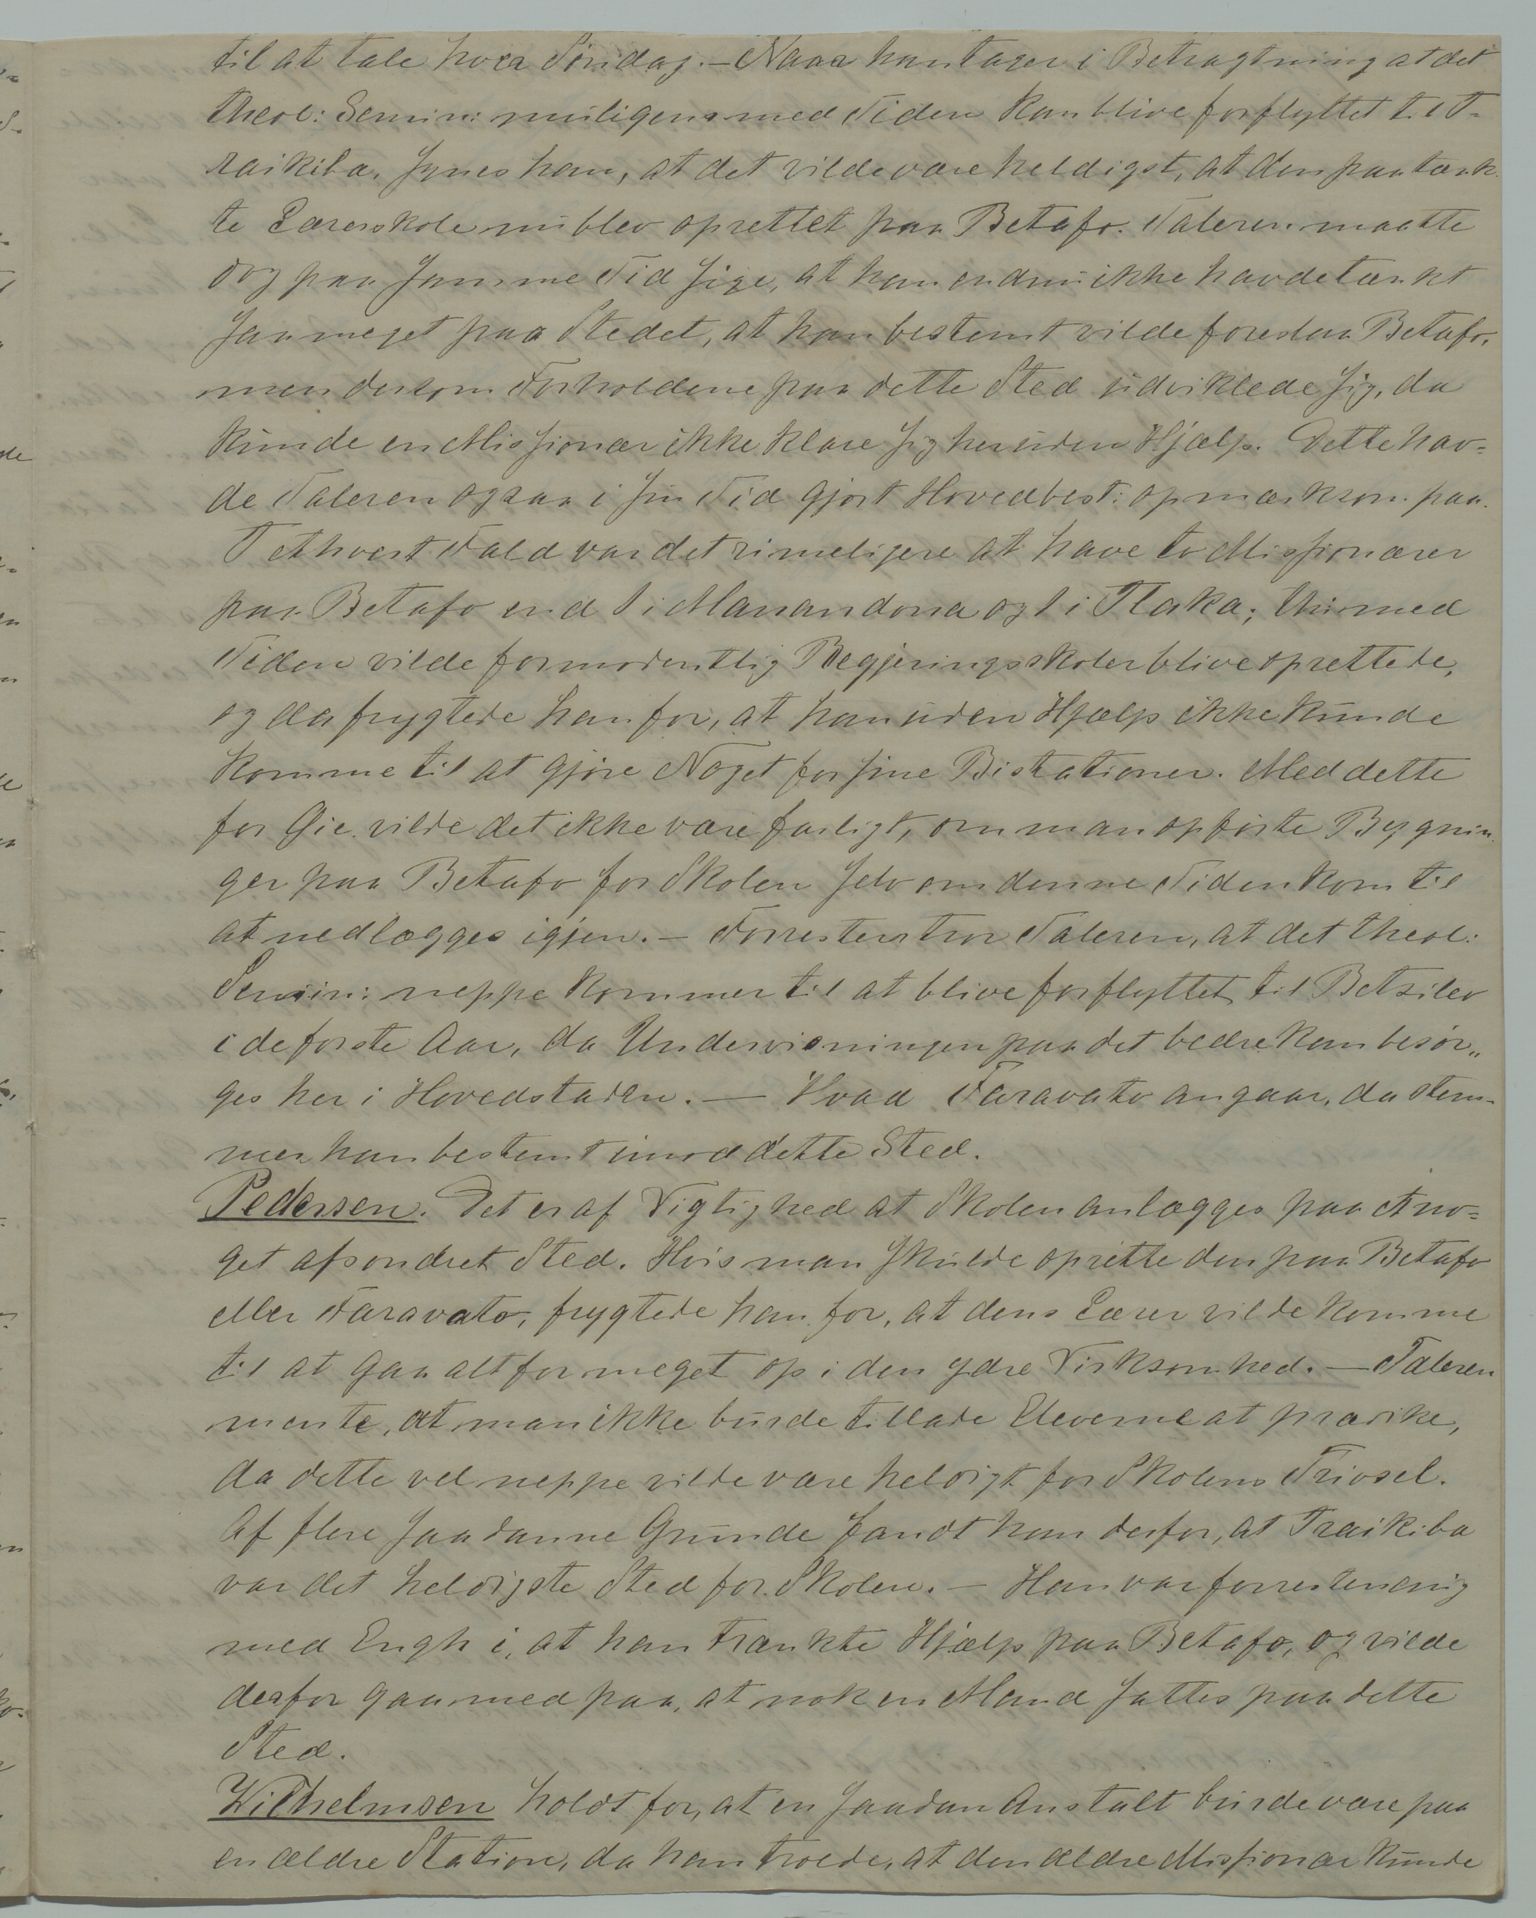 til at tale hver Søndag. – Naar han tager i Betragtning at det
theol: Semin: muligens med Tiden kan blive forflyttet til T-
raikiba, synes han, at det vilde være heldigst, at den paatænk-
te Lærerskole nu blev oprettet paa Betafo. Taleren maatte
dog paa samme Tid sige, at han endnu ikke havde tænkt
saa meget paa Stedet, at han bestemt vilde foreslaa Betafo,
men dersom Forholdene paa dette Sted udviklede sig, da
kunde en Missionær ikke klare sig her uden Hjælp. Dette hav=
de Taleren ogsaa i sin Tid gjort Hovedbest: opmærksom paa.
I ethvert Fald var det rimeligere at have to Missionærer
paa Betafo end 1 i Manandona og 1 i Ilaka; thi med
Tiden vilde formodentlig Regjeringsskoler blive oprettede,
og da frygtede han for, at han uden Hjælp ikke kunde
komme til at gjøre Noget for sine Bistationer. Med dette
for Øie vilde det ikke være farligt, om man opførte Bygnin-
ger paa Betafo for Skolen selv om denne Tiden kom til
at nedlægges igjen. – Forresten tror Taleren, at det theol:
Semin: neppe kommer til at blive forflyttet til Betsileo
i de første Aar, da Undervisningen paa det bedre kan besør„
ges her i Hovedstaden. – Hvad Faravato angaar, da stem-
mer han bestemt imod dette Sted.
Pedersen. Det er af Vigtighed at Skolen anlægges paa et no=
get afsondret Sted. Hvis man skulde oprette den paa Betafo
eller Faravato, frygtede han for, at dens Lærer vilde komme
til at gaa alt for meget op i den ydre Virksomhed. – Taleren
mente, at man ikke burde tillade Eleverne at prædike,
da dette vel neppe vilde være heldigt for Skolens Trivsel.
Af flere saadanne Grunde fandt han derfor, at Traikiba
var det heldigste Sted for Skolen. – Han var forresten enig
med Engh i, at han trænkte Hjælp paa Betafo, og vilde
derfor gaa med paa, at nok en Mand sattes paa dette
Sted.
Wilhelmsen holdt for, at en saadan Anstalt burde være paa
en ældre Station, da han troede, at den ældre Missionær kunde